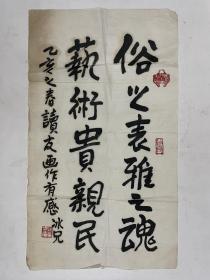 俗之表雅之魂
藝術貴親民
乙亥之春讀友画作有感 冰兄